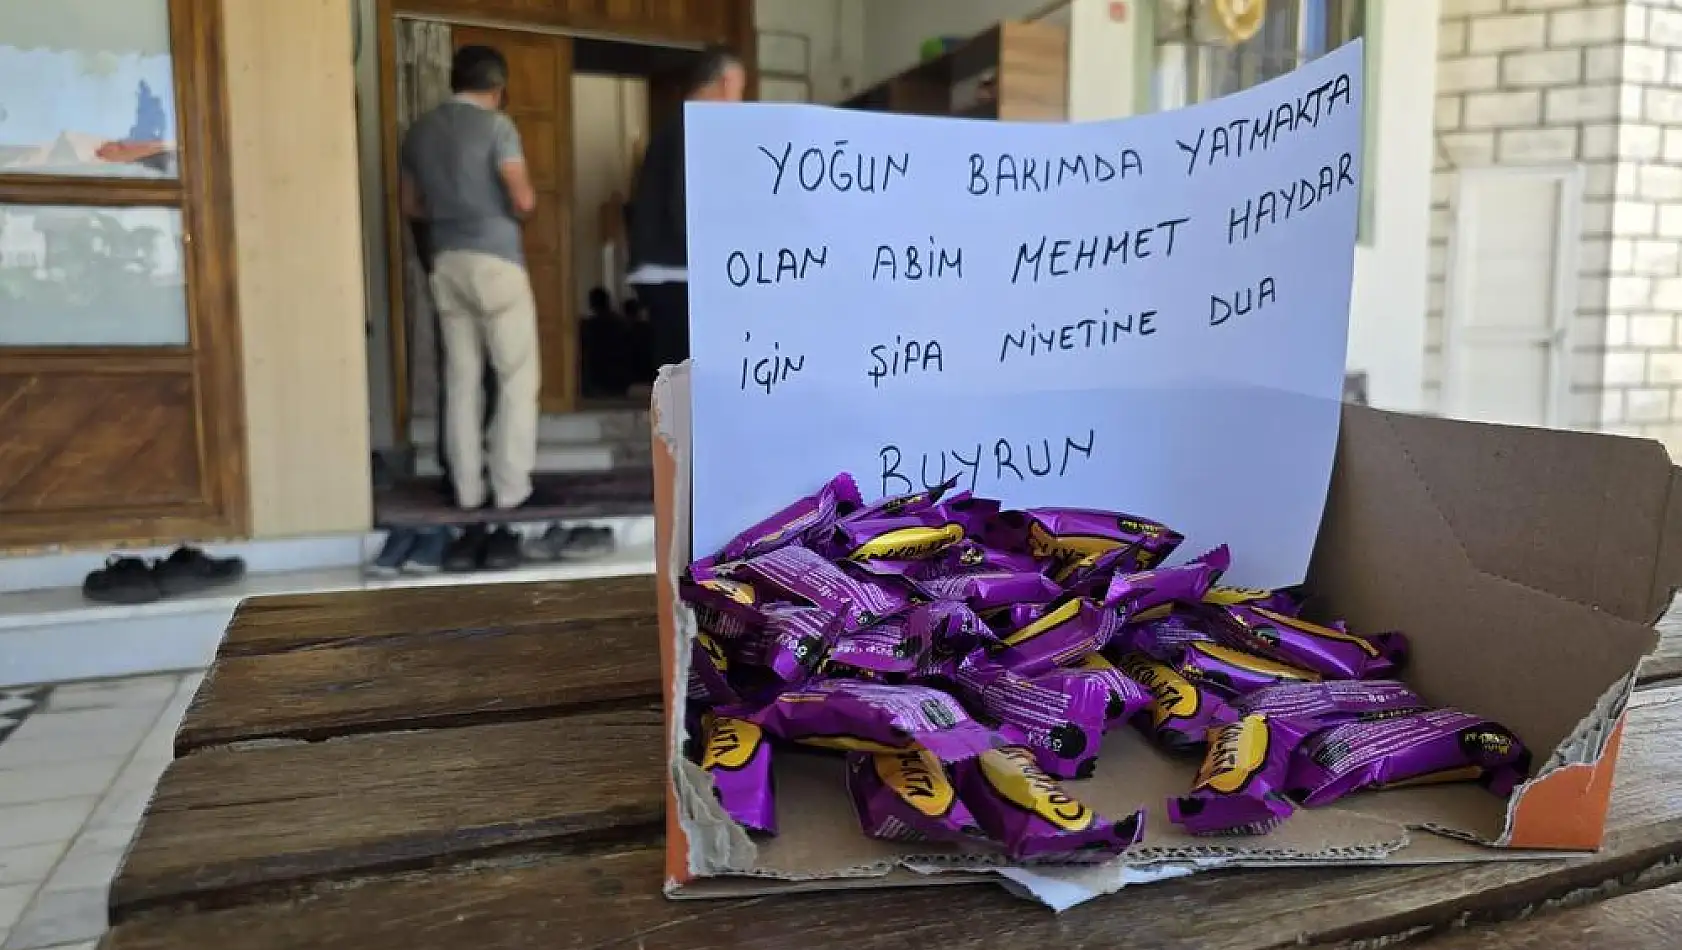 YOĞUN BAKIMDA YATMAKTA
OLAN ABİM MEHMET HAYDAR
İÇİN ŞİPA NİYETİNE DUA
BUYRUN
ÇOKKOLATA